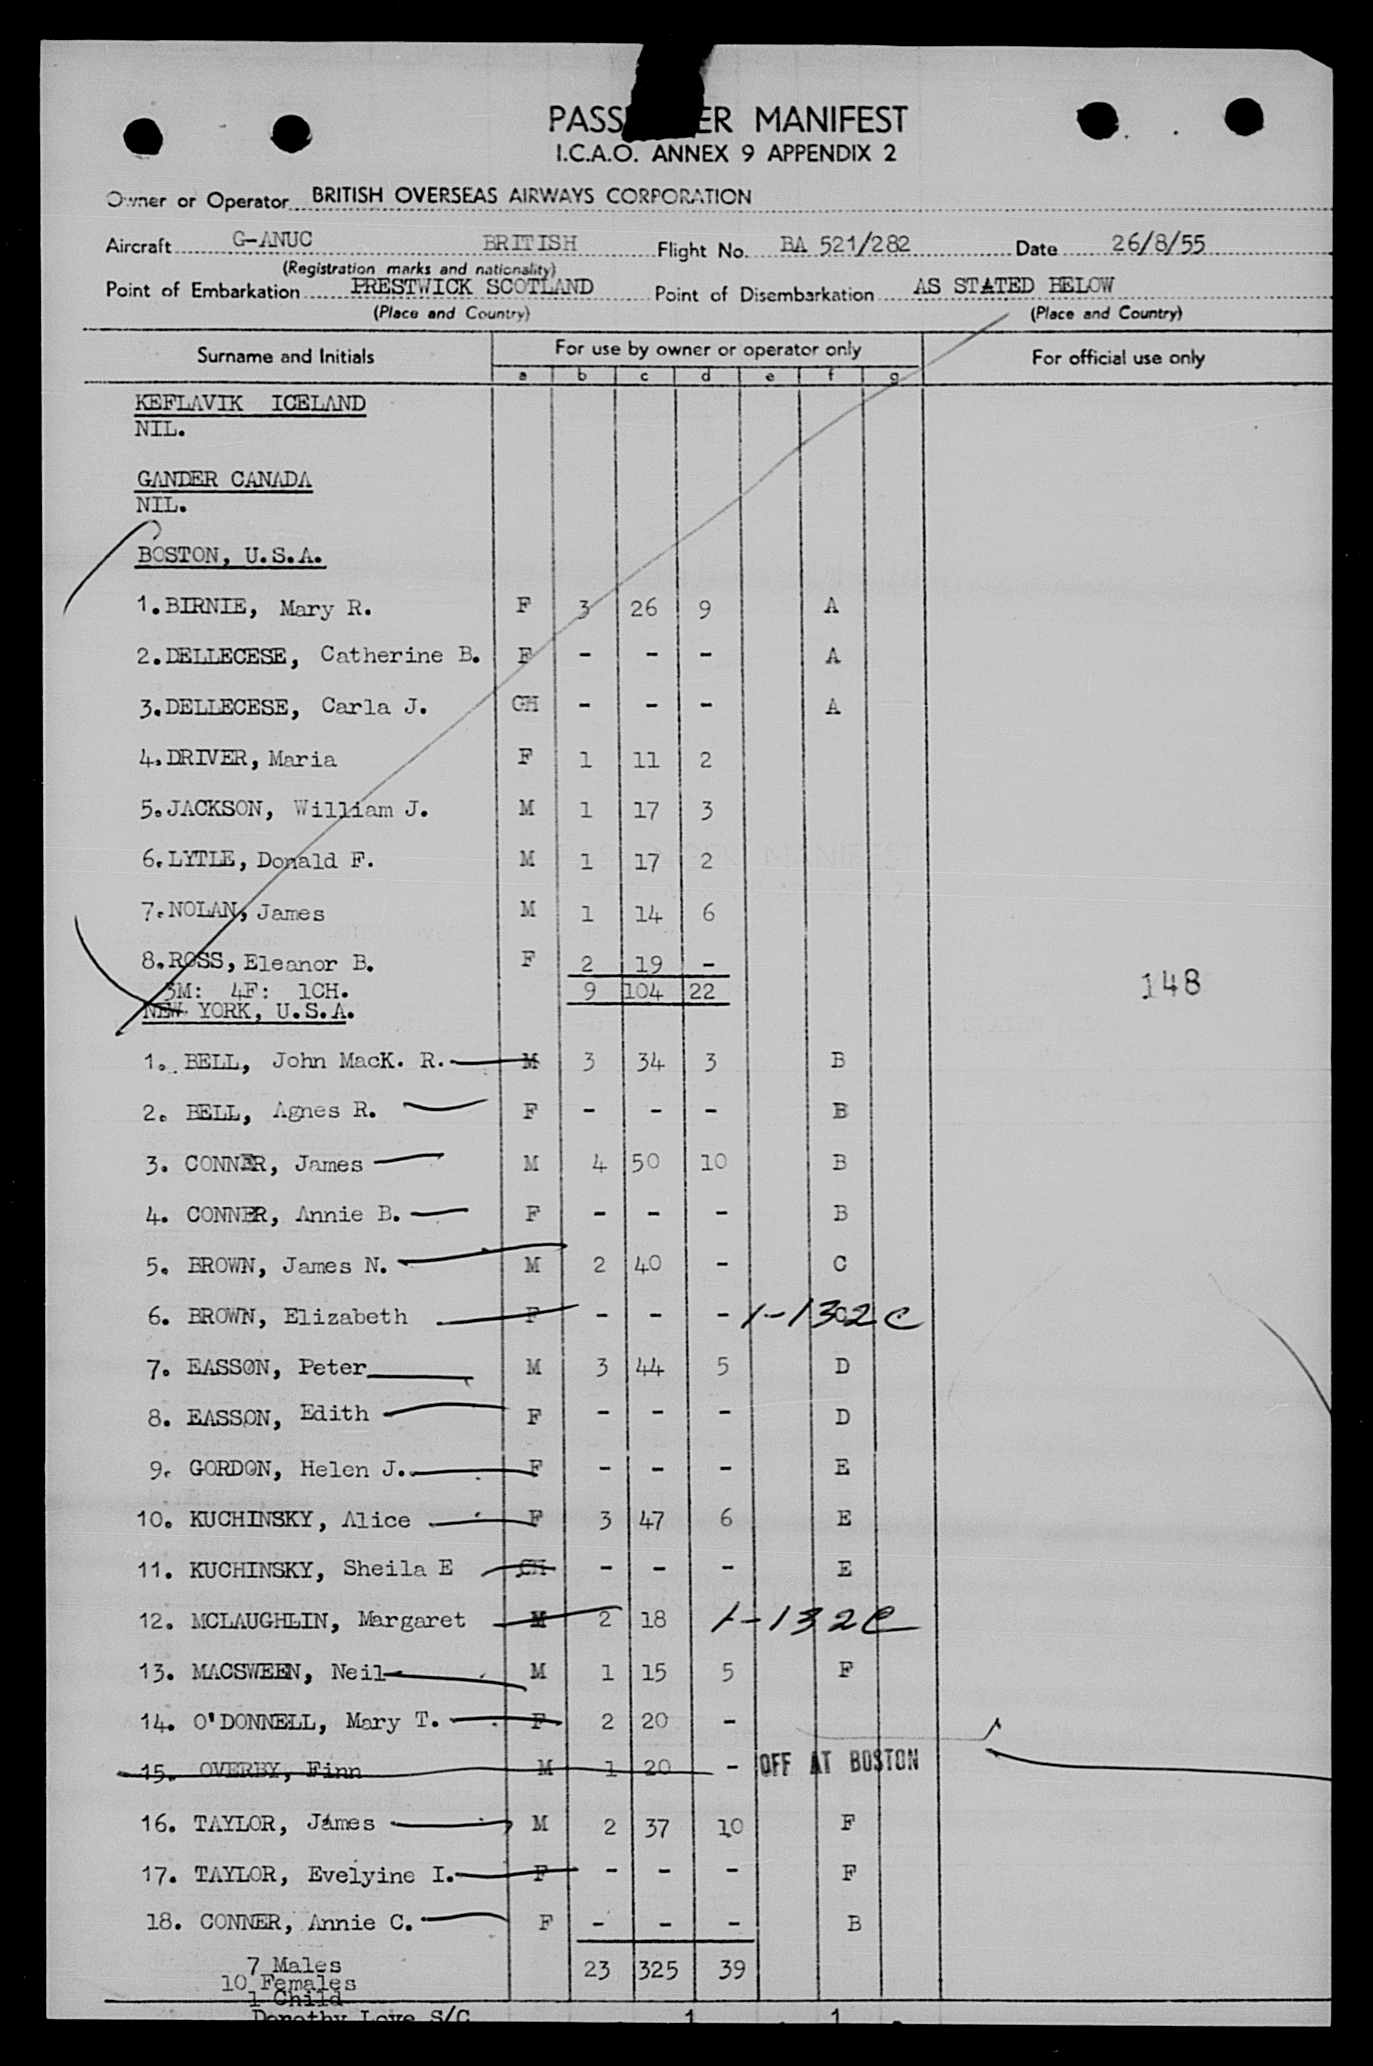 PASS ER MANIFEST
I.C.A.O. ANNEX 9 APPENDIX 2
Owner or Operator BRITISH OVERSEAS AIRWAYS CORPORATION
Aircraft G-ANUC BRITISH Flight No. BA 521/282 Date 26/8/55
(Registration marks and nationality)
Point of Embarkation PRESTWICK SCOTLAND Point of Disembarkation AS STATED BELOW
(Place and Country) (Place and Country)
Surname and Initials For use by owner or operator only For official use only
a b c d e f g
KEFLAVIK ICELAND
NIL.
GANDER CANADA
NIL.
BOSTON, U.S.A.
1. BIRNIE, Mary R. F 3 26 9 A
2. DELLECESE, Catherine B. F - - - A
3. DELLECESE, Carla J. CH - - - A
4. DRIVER, Maria F 1 11 2
5. JACKSON, William J. M 1 17 3
6. LYTLE, Donald F. M 1 17 2
7. NOLAN, James M 1 14 6
8. ROSS, Eleanor B. F 2 19 -
3M: 4F: 1CH. 9 104 22
148
NEW YORK, U.S.A.
1. BELL, John MacK. R. M 3 34 3 B
2. BELL, Agnes R. F - - - B
3. CONNER, James M 4 50 10 B
4. CONNER, Annie B. F - - - B
5. BROWN, James N. M 2 40 - C
6. BROWN, Elizabeth F - - - C 1-132 C
7. EASSON, Peter M 3 44 5 D
8. EASSON, Edith F - - - D
9. GORDON, Helen J. F - - - E
10. KUCHINSKY, Alice F 3 47 6 E
11. KUCHINSKY, Sheila E CH - - - E
12. MCLAUGHLIN, Margaret 2 18 1-132 C
13. MACSWEEN, Neil M 1 15 5 F
14. O'DONNELL, Mary T. F 2 20 -
15. OVERBY, Finn M 1 20 - OFF AT BOSTON
16. TAYLOR, James M 2 37 10 F
17. TAYLOR, Evelyine I. F - - - F
18. CONNER, Annie C. F - - - B
7 Males 23 325 39
10 Females
1 Child
Dorothy Love S/C 1 1